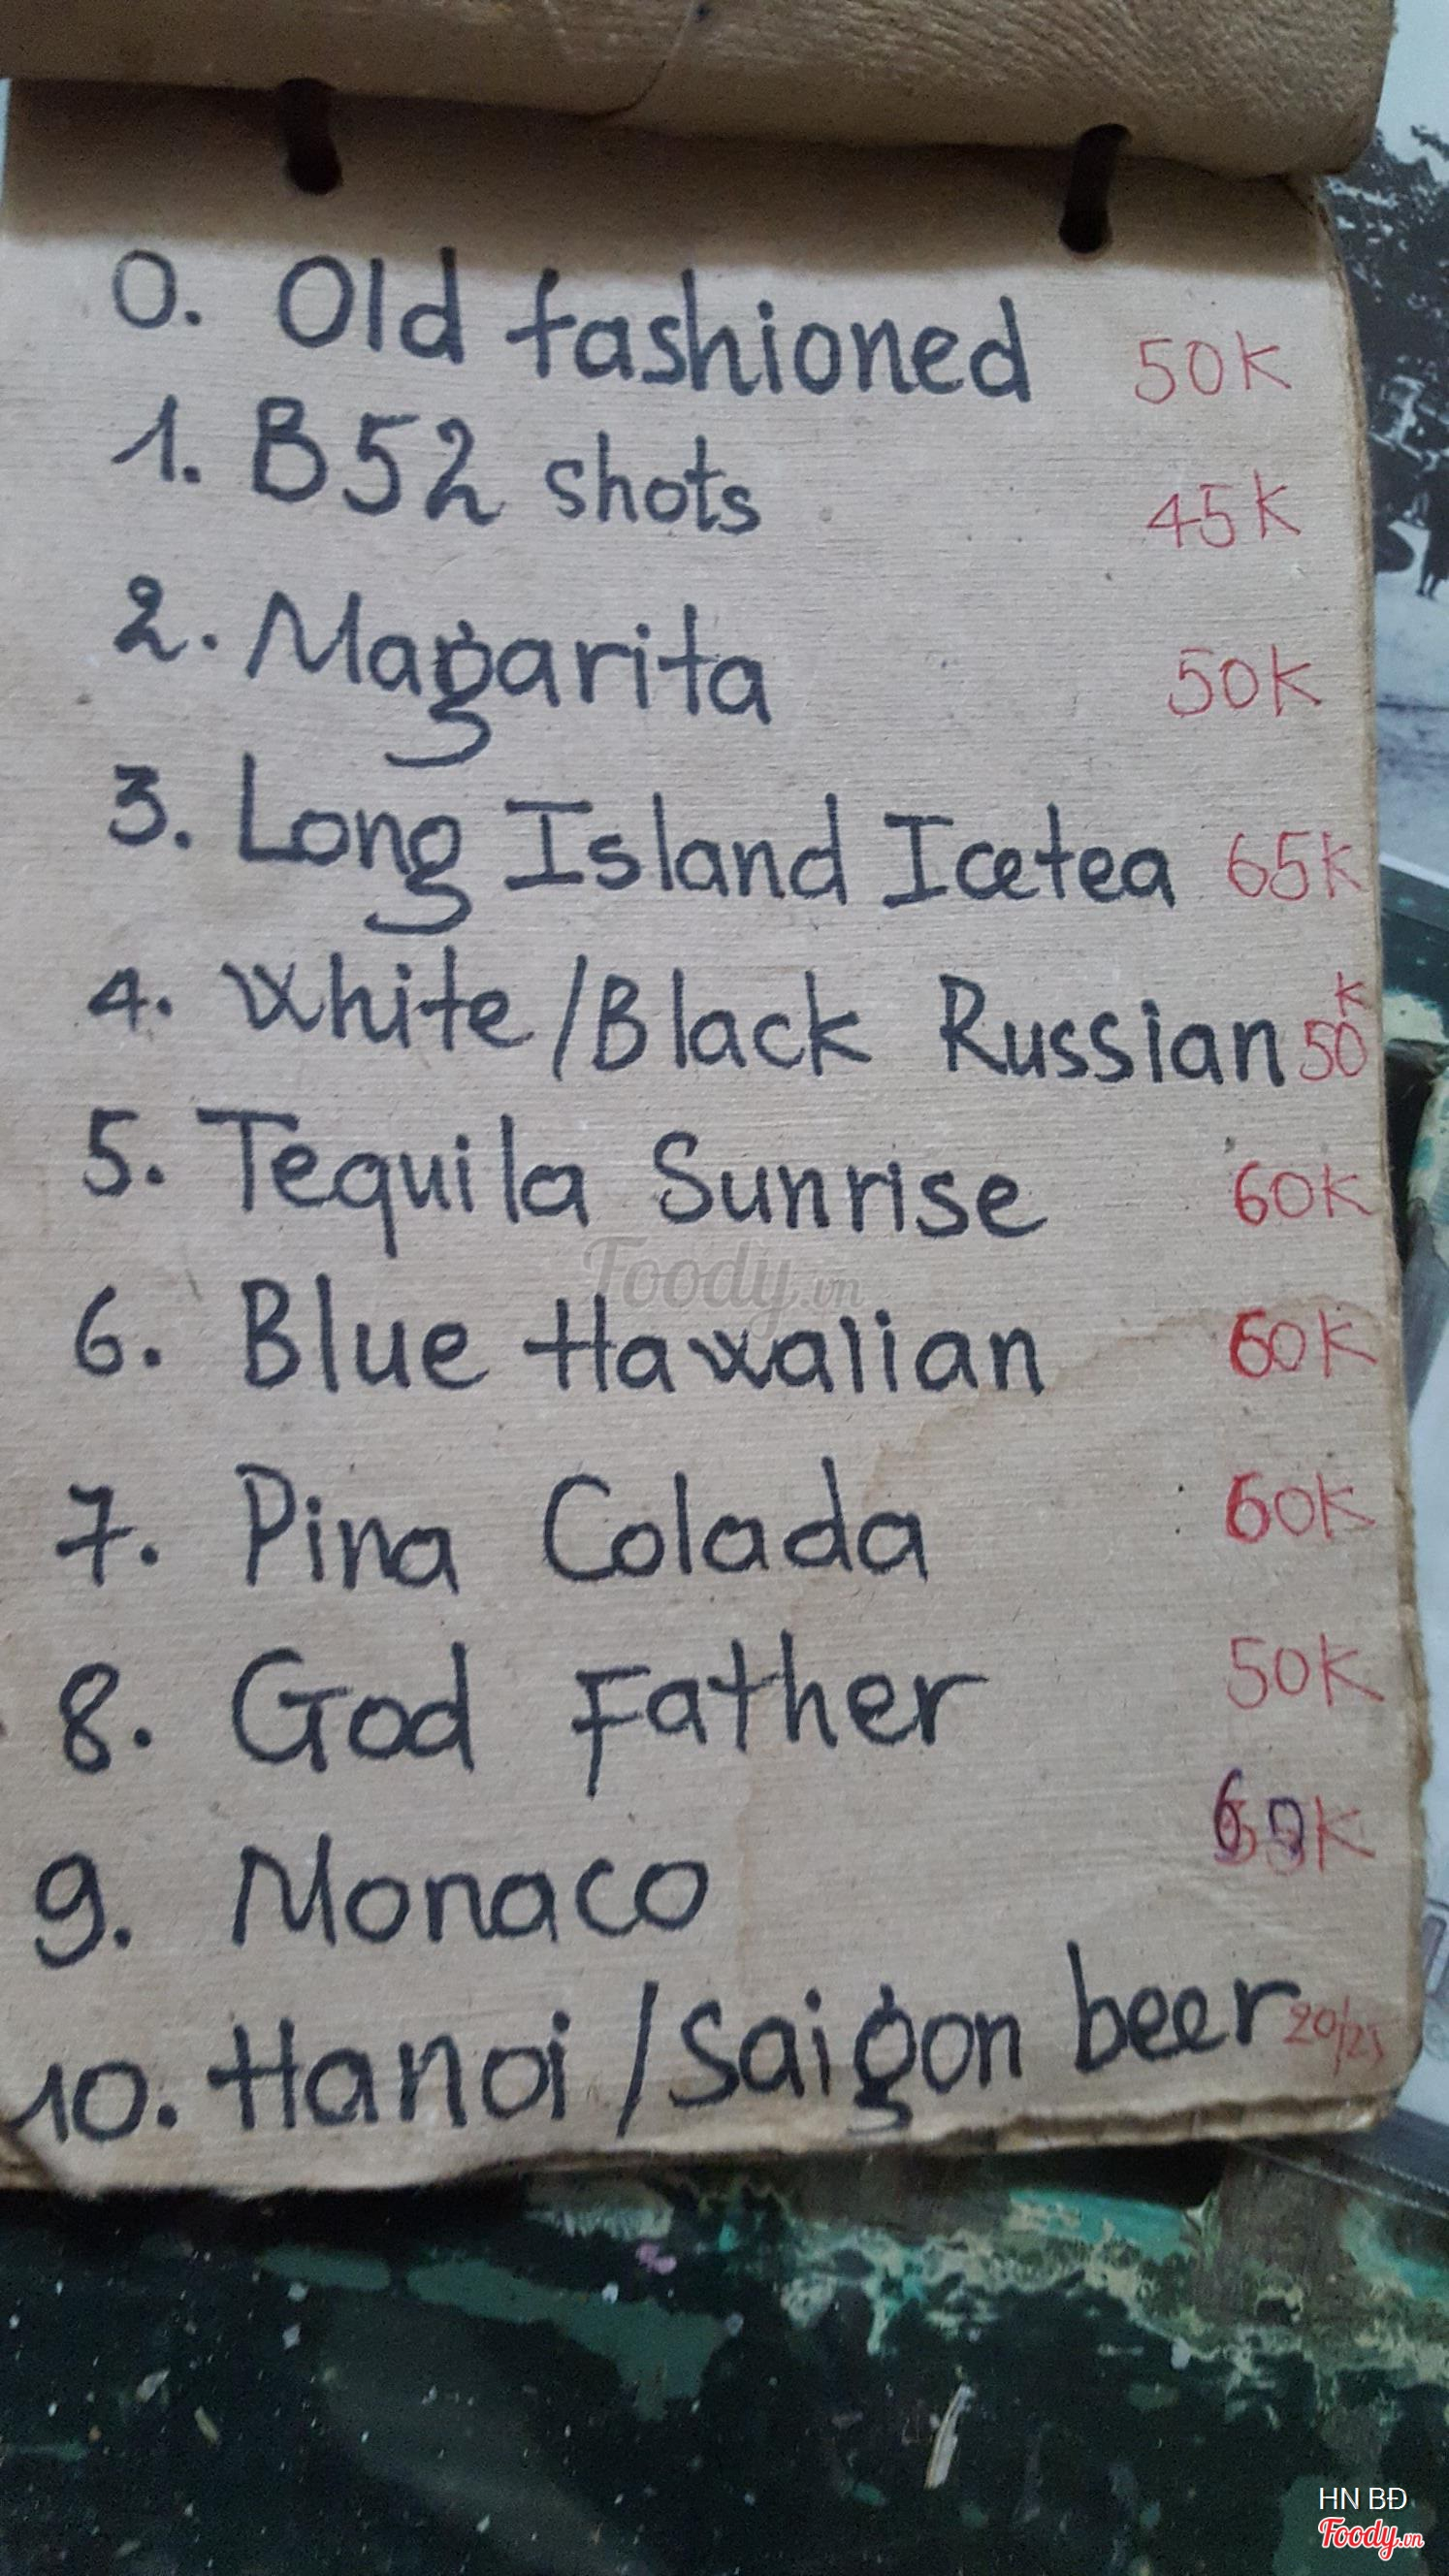 0. Old fashioned 50K
1. B52 shots 45K
2. Magarita 50K
3. Long Island Icetea 65K
4. White/Black Russian 50K
5. Tequila Sunrise 60K
6. Blue Hawaiian 60K
7. Pina Colada 60K
8. God Father 50K
9. Monaco 60K
10. Hanoi/Saigon beer 20/25
Foody.vn
HN BĐ
Foody.vn